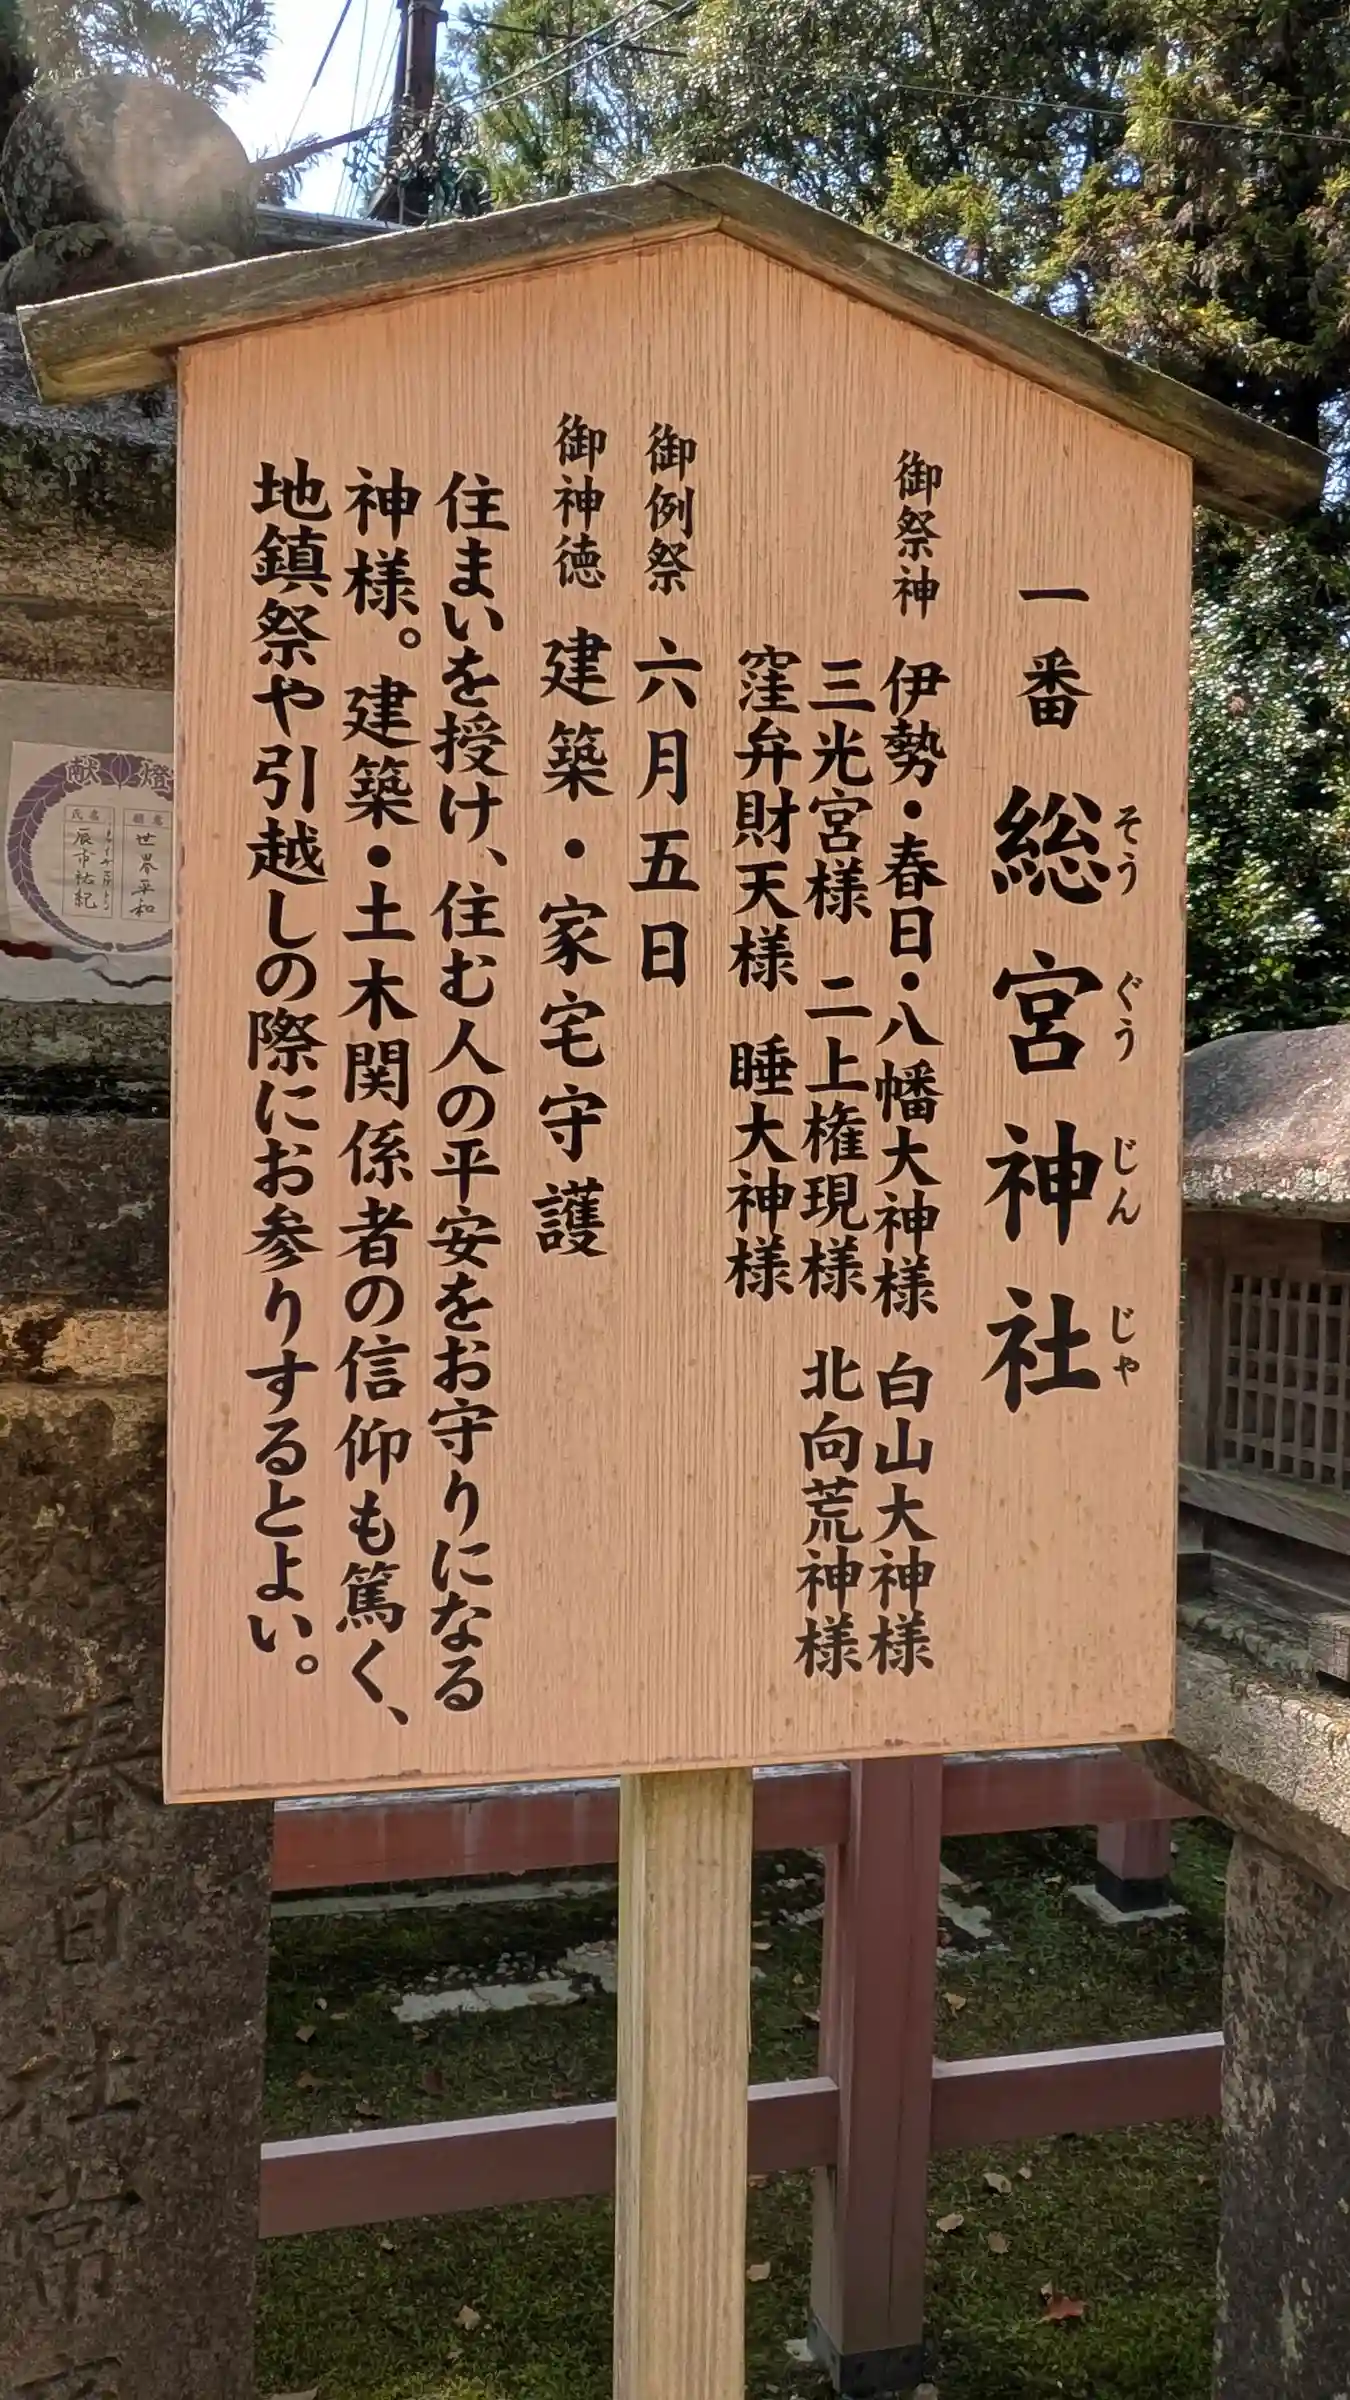 一番 総宮神社
そうぐうじんじゃ
御祭神 伊勢・春日・八幡大神様 白山大神様
三光宮様 二上権現様 北向荒神様
窪弁財天様 睡大神様
御例祭 六月五日
御神徳 建築・家宅守護
住まいを授け、住む人の平安をお守りになる
神様。建築・土木関係者の信仰も篤く、
地鎮祭や引越しの際にお参りするとよい。
献燈
願意
世界平和
氏名
辰市祐紀
春日社常